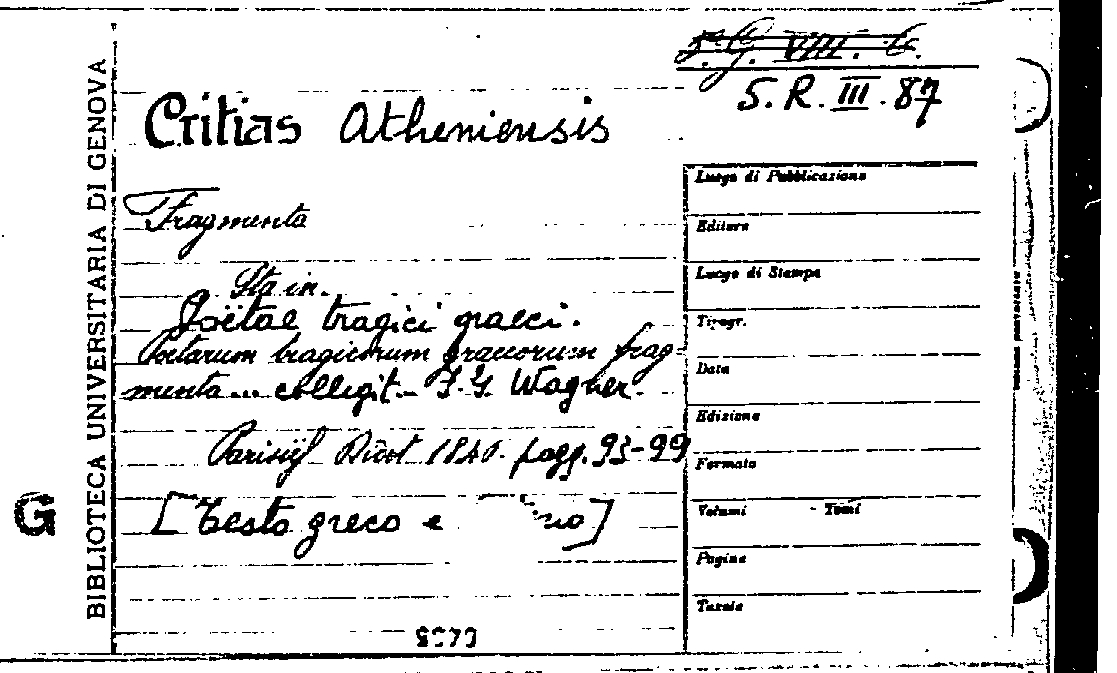 S.G. VIII. 6.
S.R. III. 87
Critias Atheniensis
Fragmenta
Sta in.
Poëtae tragici graeci.
Poetarum tragicorum graecorum frag-
menta... collegit... F.G. Wagner.
Parisiis Didot 1846. pagg. 93-99
[Testo greco e
BIBLIOTECA UNIVERSITARIA DI GENOVA
G
Luogo di Pubblicazione
Editore
Luogo di Stampa
Tipogr.
Data
Edizione
Formato
Volumi - Tomi
Pagine
Tavole